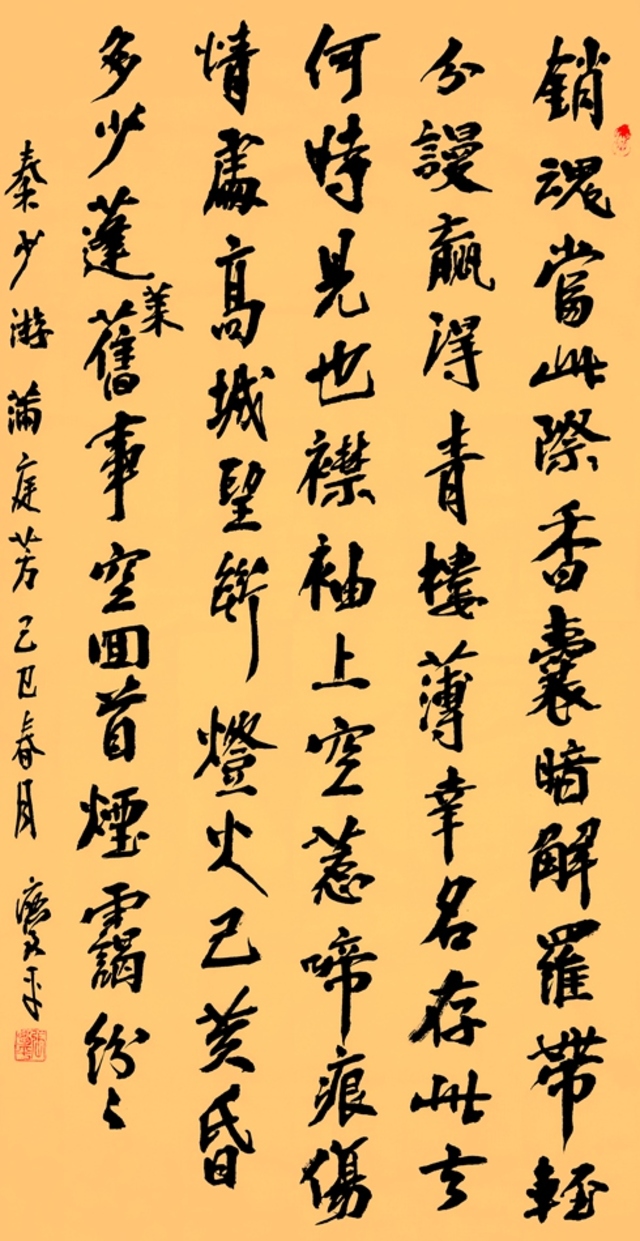 銷魂當此際香囊暗解羅帶輕
分謾贏得青樓薄幸名存此去
何時見也襟袖上空惹啼痕傷
情處高城望斷燈火已黃昏
多少蓬萊舊事空回首煙靄紛々
秦少游滿庭芳己巳春月